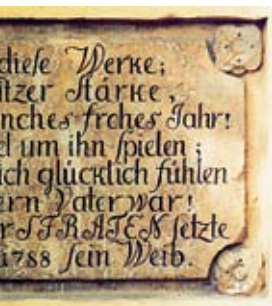 dieſe Werke;
itzer ſtärke,
nches frohes Jahr!
el um ihn ſpielen;
ich glücklich fühlen
ern Vater war!
er STRATEN ſetzte
1788 ſein Weib.